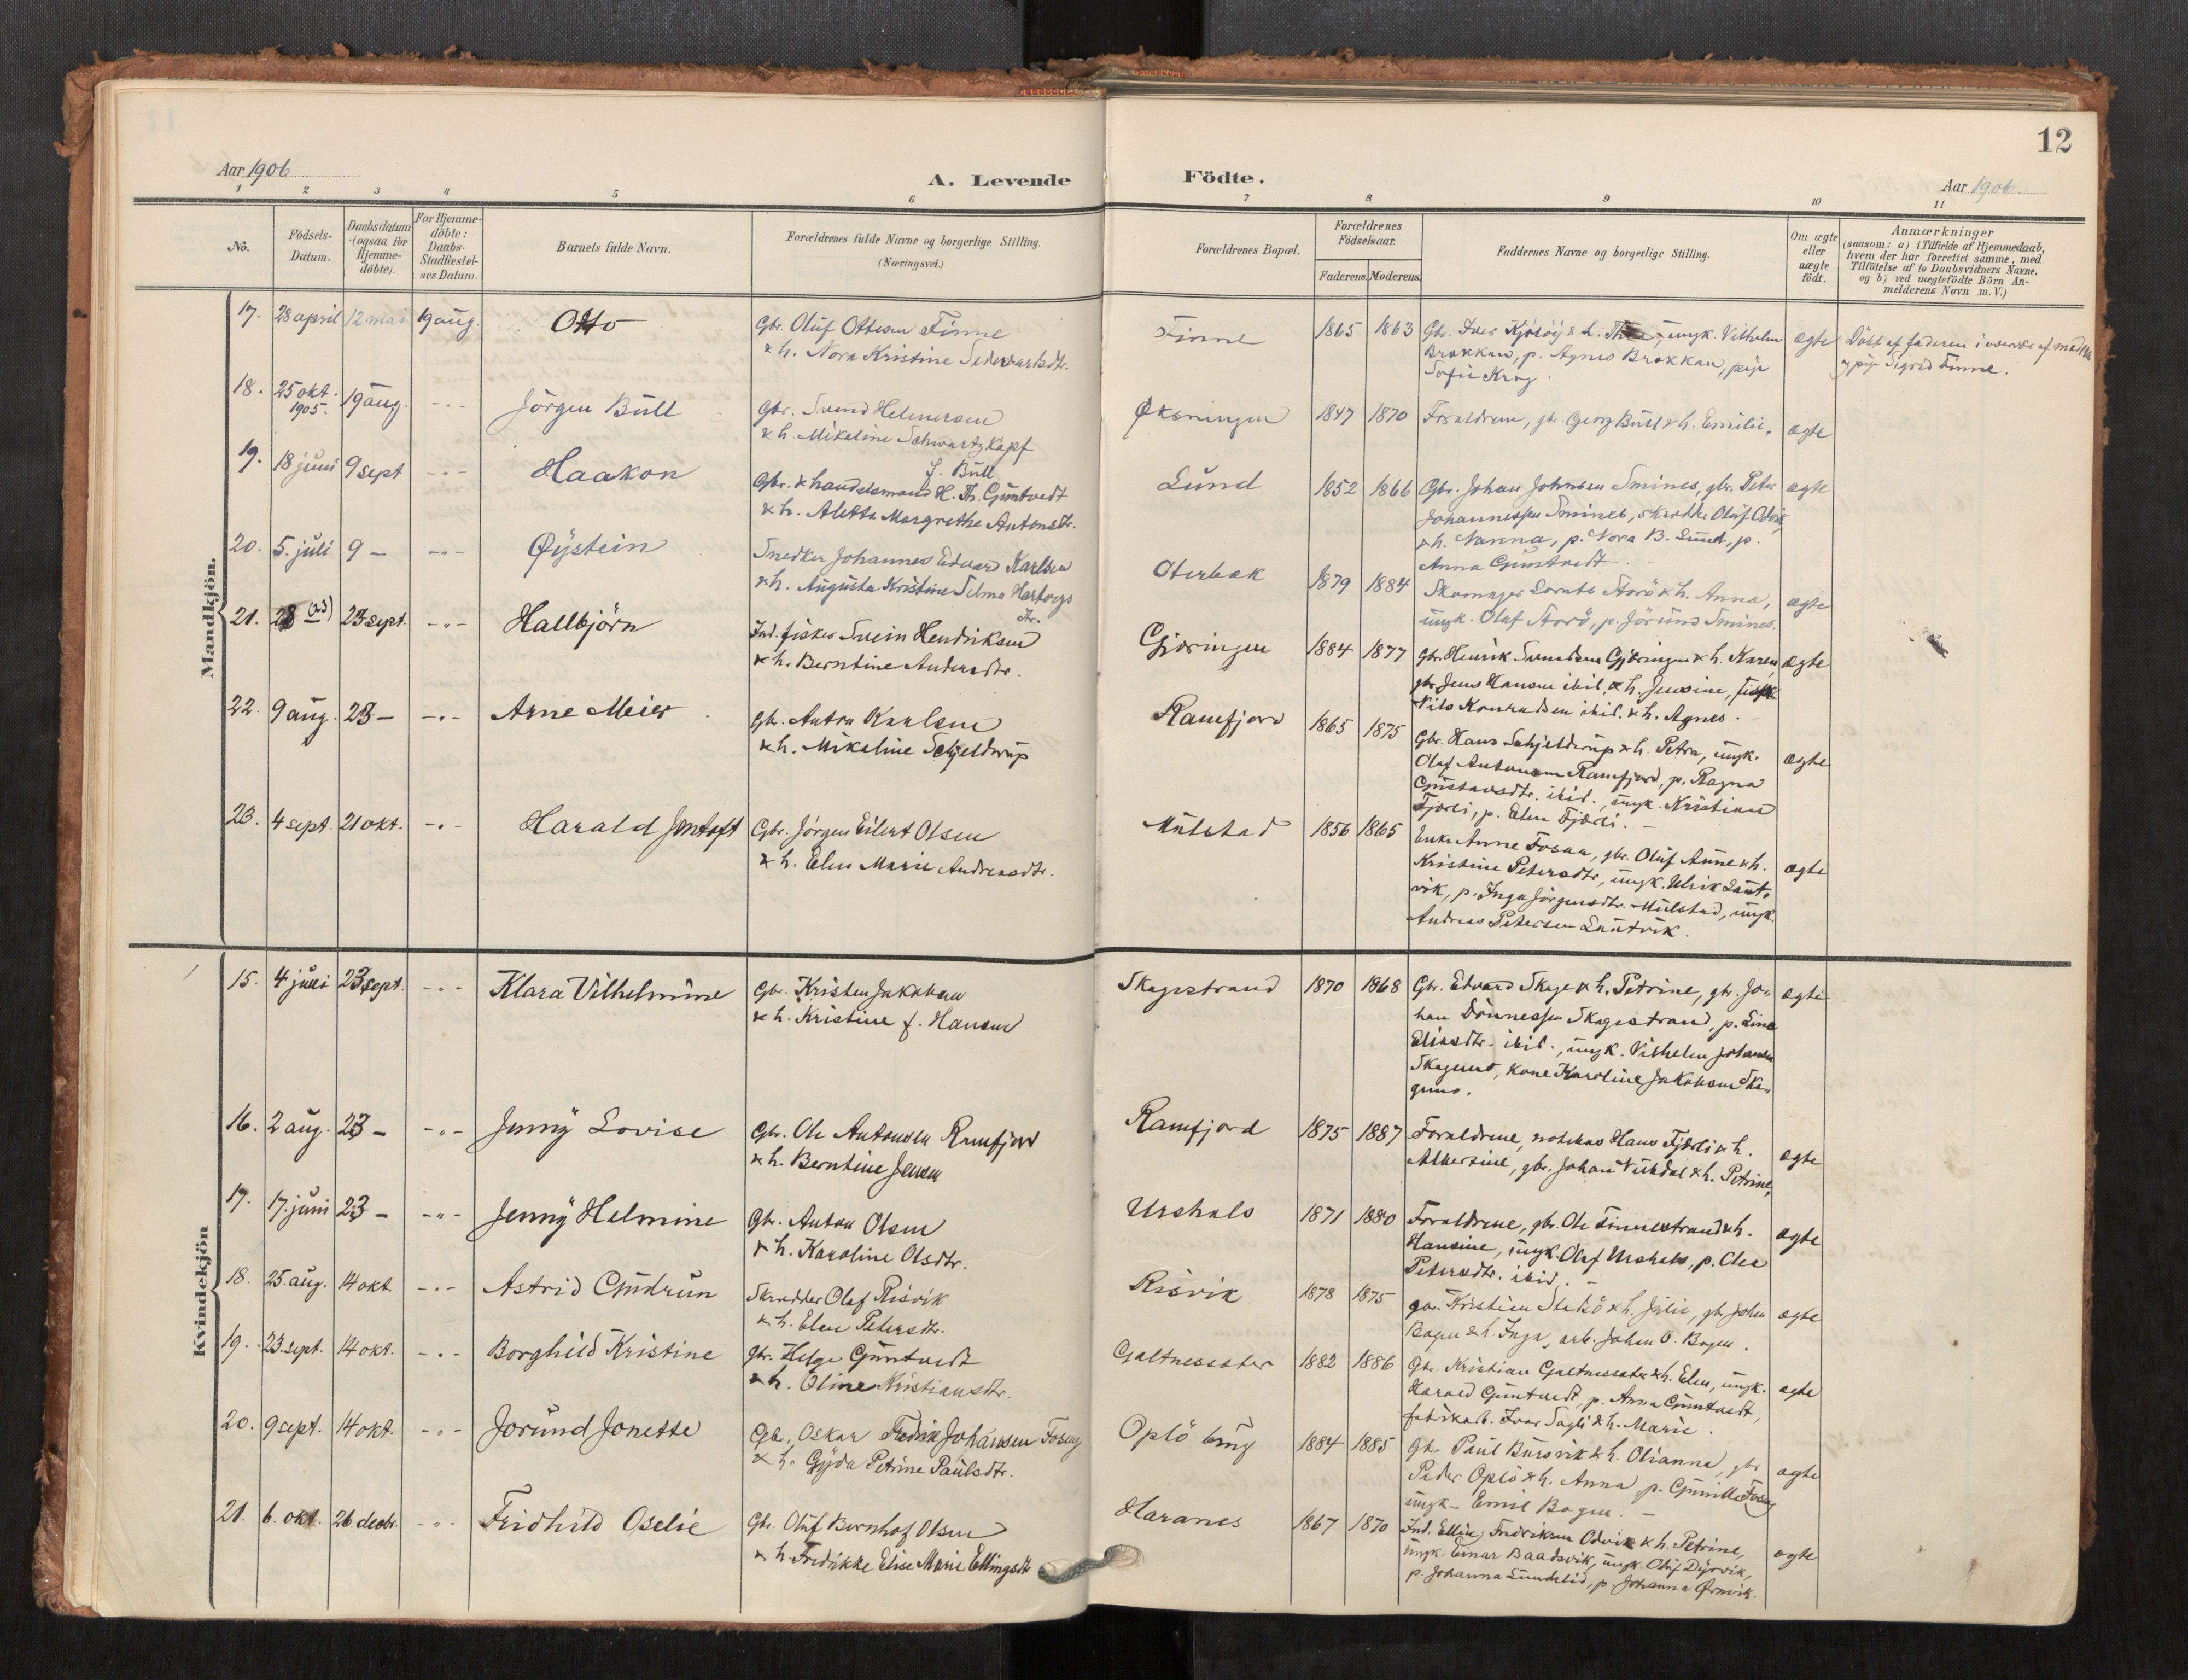 12
Aar 1906
A. Levende
Födte.
Aar 1906
1 2 3 4 5 6 7 8 9 10 11
No.
Födsels-
Datum.
Daabsdatum
(ogsaa for
Hjemme-
döbte).
For Hjemme-
döbte:
Daabs-
Stadfæstel-
ses Datum.
Barnets fulde Navn.
Forældrenes fulde Navne og borgerlige Stilling.
(Næringsvei.)
Forældrenes Bopæl.
Forældrenes
Födselsaar.
Faderens. Moderens.
Faddernes Navne og borgerlige Stilling.
Om ægte
eller
uægte
født.
Anmærkninger
(saasom: a) i Tilfælde af Hjemmedaab,
hvem der har forrettet samme, med
Tilföielse af to Daabsvidners Navne.
og b) ved uægtefödte Börn An-
melderens Navn m. V.)
Mandkjön.
17. 28 april 12 mai 19 aug. Otto
Gbr. Oluf Ottesen Finne
& h. Nora Kristine
Finne 1865 1863
Gbr. Iver & h. ungk. Vilhelm
Brakkan, p. Agnes Brakkan, pige
Sofie Krog
ægte
Döbt af faderen i overvær af
og pige Sigrid Finne.
18. 25 okt. 1905. 19 aug. -"- Jörgen Bull
Gbr. Svend Helmersen
& h. Mikaline Schwartzkopf
f. Bull
Øksningen 1847 1870
Forældrene, gbr. Georg Bull & h. Emilie.
ægte
19. 18 juni 9 sept -"- Haakon
Gbr. & handelsmand H. Th. Guntvedt
& h. Aletta Margrethe Antonsdtr.
Lund 1852 1866
Gbr. Johan Johnsen Smines, gbr. Peter
Johannessen Smines, skrædder Oluf
& h. Nanna, p. Nora B. Lund, p.
Anna Guntvedt.
ægte
20. 5. juli 9 - -"- Øystein
Snedker Johannes Edvard Karlsen
& h. Augusta Kristine Selma Hartvigs
dtr.
Oterbæk 1879 1884
Skomager Lornts Storö & h. Anna,
ungk. Olaf Storö, p. Jörund Smines.
ægte
21. 28 (23) 23 sept. -"- Hallbjörn
Ind. fisker Svein Hendriksen
& h. Berntine Andersdtr.
Gjæringen 1884 1877
Gbr. Henrik Svendsen Gjæringen & h. Karen,
gbr. Jens Hansen ibid. & h. Jensine, fisker
Nils Konradsen ibid. & h. Agnes.
ægte
22. 9 aug. 23 - -"- Arne Meier
Gbr. Anton Karlsen
& h. Mikaline Schjelderup
Ramfjord 1865 1875
Gbr. Hans Schjelderup & h. Petra, ungk.
Olaf Antonsen Ramfjord, p. Ragna
Gustavsdtr. ibid., ungk. Kristian
Fjærli, p. Elen Fjærli.
ægte
23. 4 sept. 21 okt. -"- Harald Jentoft
Gbr. Jörgen Eilert Olsen
& h. Elen Marie Andreasdtr.
Mulstad 1856 1865
Enke Anne Fosaa, gbr. Oluf Aune & h.
Kristine Petersdtr, ungk. Ulrik Laut-
vik, p. Inga Jörgensdtr. Mulstad, ungk.
Andreas Petersen Lautvik.
ægte
Kvindekjön
15. 4 juli 23 sept. -"- Klara Vilhelmine
Gbr. Kristen Jakobsen
& h. Kristine f. Hansen
Skagstrand 1870 1868
Gbr. Edvard Skage & h. Petrine, gbr. Jo-
han Dönnessen Skagstrand, p. Lina
Eliasdtr. ibid., ungk. Vilhelm Johansen
kone Karoline Jakobsen
ægte
16. 2 aug. 23 - -"- Jenny Lovise
Gbr. Ole Antonsen Ramfjord
& h. Berntine Jensen
Ramfjord 1875 1887
Forældrene, notebas Hans Fjærli & h.
Albertine, gbr. Johan & h. Petrine,
ægte
17. 17. juni 23 - -"- Jenny Helmine
Gbr. Anton Olsen
& h. Karoline Olsdtr.
Urshals 1871 1880
Forældrene, gbr. Ole Finnestrand & h.
Hansine, ungk. Olaf Urshals, p. Clea
Petersdtr. ibid.
ægte
18. 25. aug. 14 okt. -"- Astrid Gudrun
Skrædder Olaf Risvik
& h. Elen Petersdtr.
Risvik 1878 1875
gbr. Kristian & h. Julie, gbr. John
Bogen & h. Inga, arb. Johan O. Bogen.
ægte
19. 23. sept. 14 okt. -"- Borghild Kristine
gbr. Helge Guntvedt
& h. Oline Kristiansdtr.
Galtnessæter 1882 1886
Gbr. Kristian Galtnessæter & h. Elen, ungk.
Harald Guntvedt, p. Anna Guntvedt,
fabrikarb. Ivar Sagli & h. Marie.
ægte
20. 9 sept. 14 okt. -"- Jorund Jonette
Gbr. Oskar Fredrik Johansen Fosng
& h. Gyda Petrine Paulsdtr.
Oplö brug 1884 1885
Gbr. Paul Bursvik & h. Olianna, gbr
Peder Oplö & h. Anna, p. Gunille Fosng
ungk. Emil Bogen.
ægte
21. 6. okt. 26 decbr. -"- Fridhild Oselie
Gbr. Oluf Bernhof Olsen
& h. Fredrikke Elise Marie Ellingsdtr
Haranes 1867 1870
Ind. Elling Fredriksen Odvik & h. Petrine,
ungk. Einar Baadsvik, ungk. Oluf Dyrvik,
p. Johanna Lundslid, p. Johanna Ørnvik.
ægte